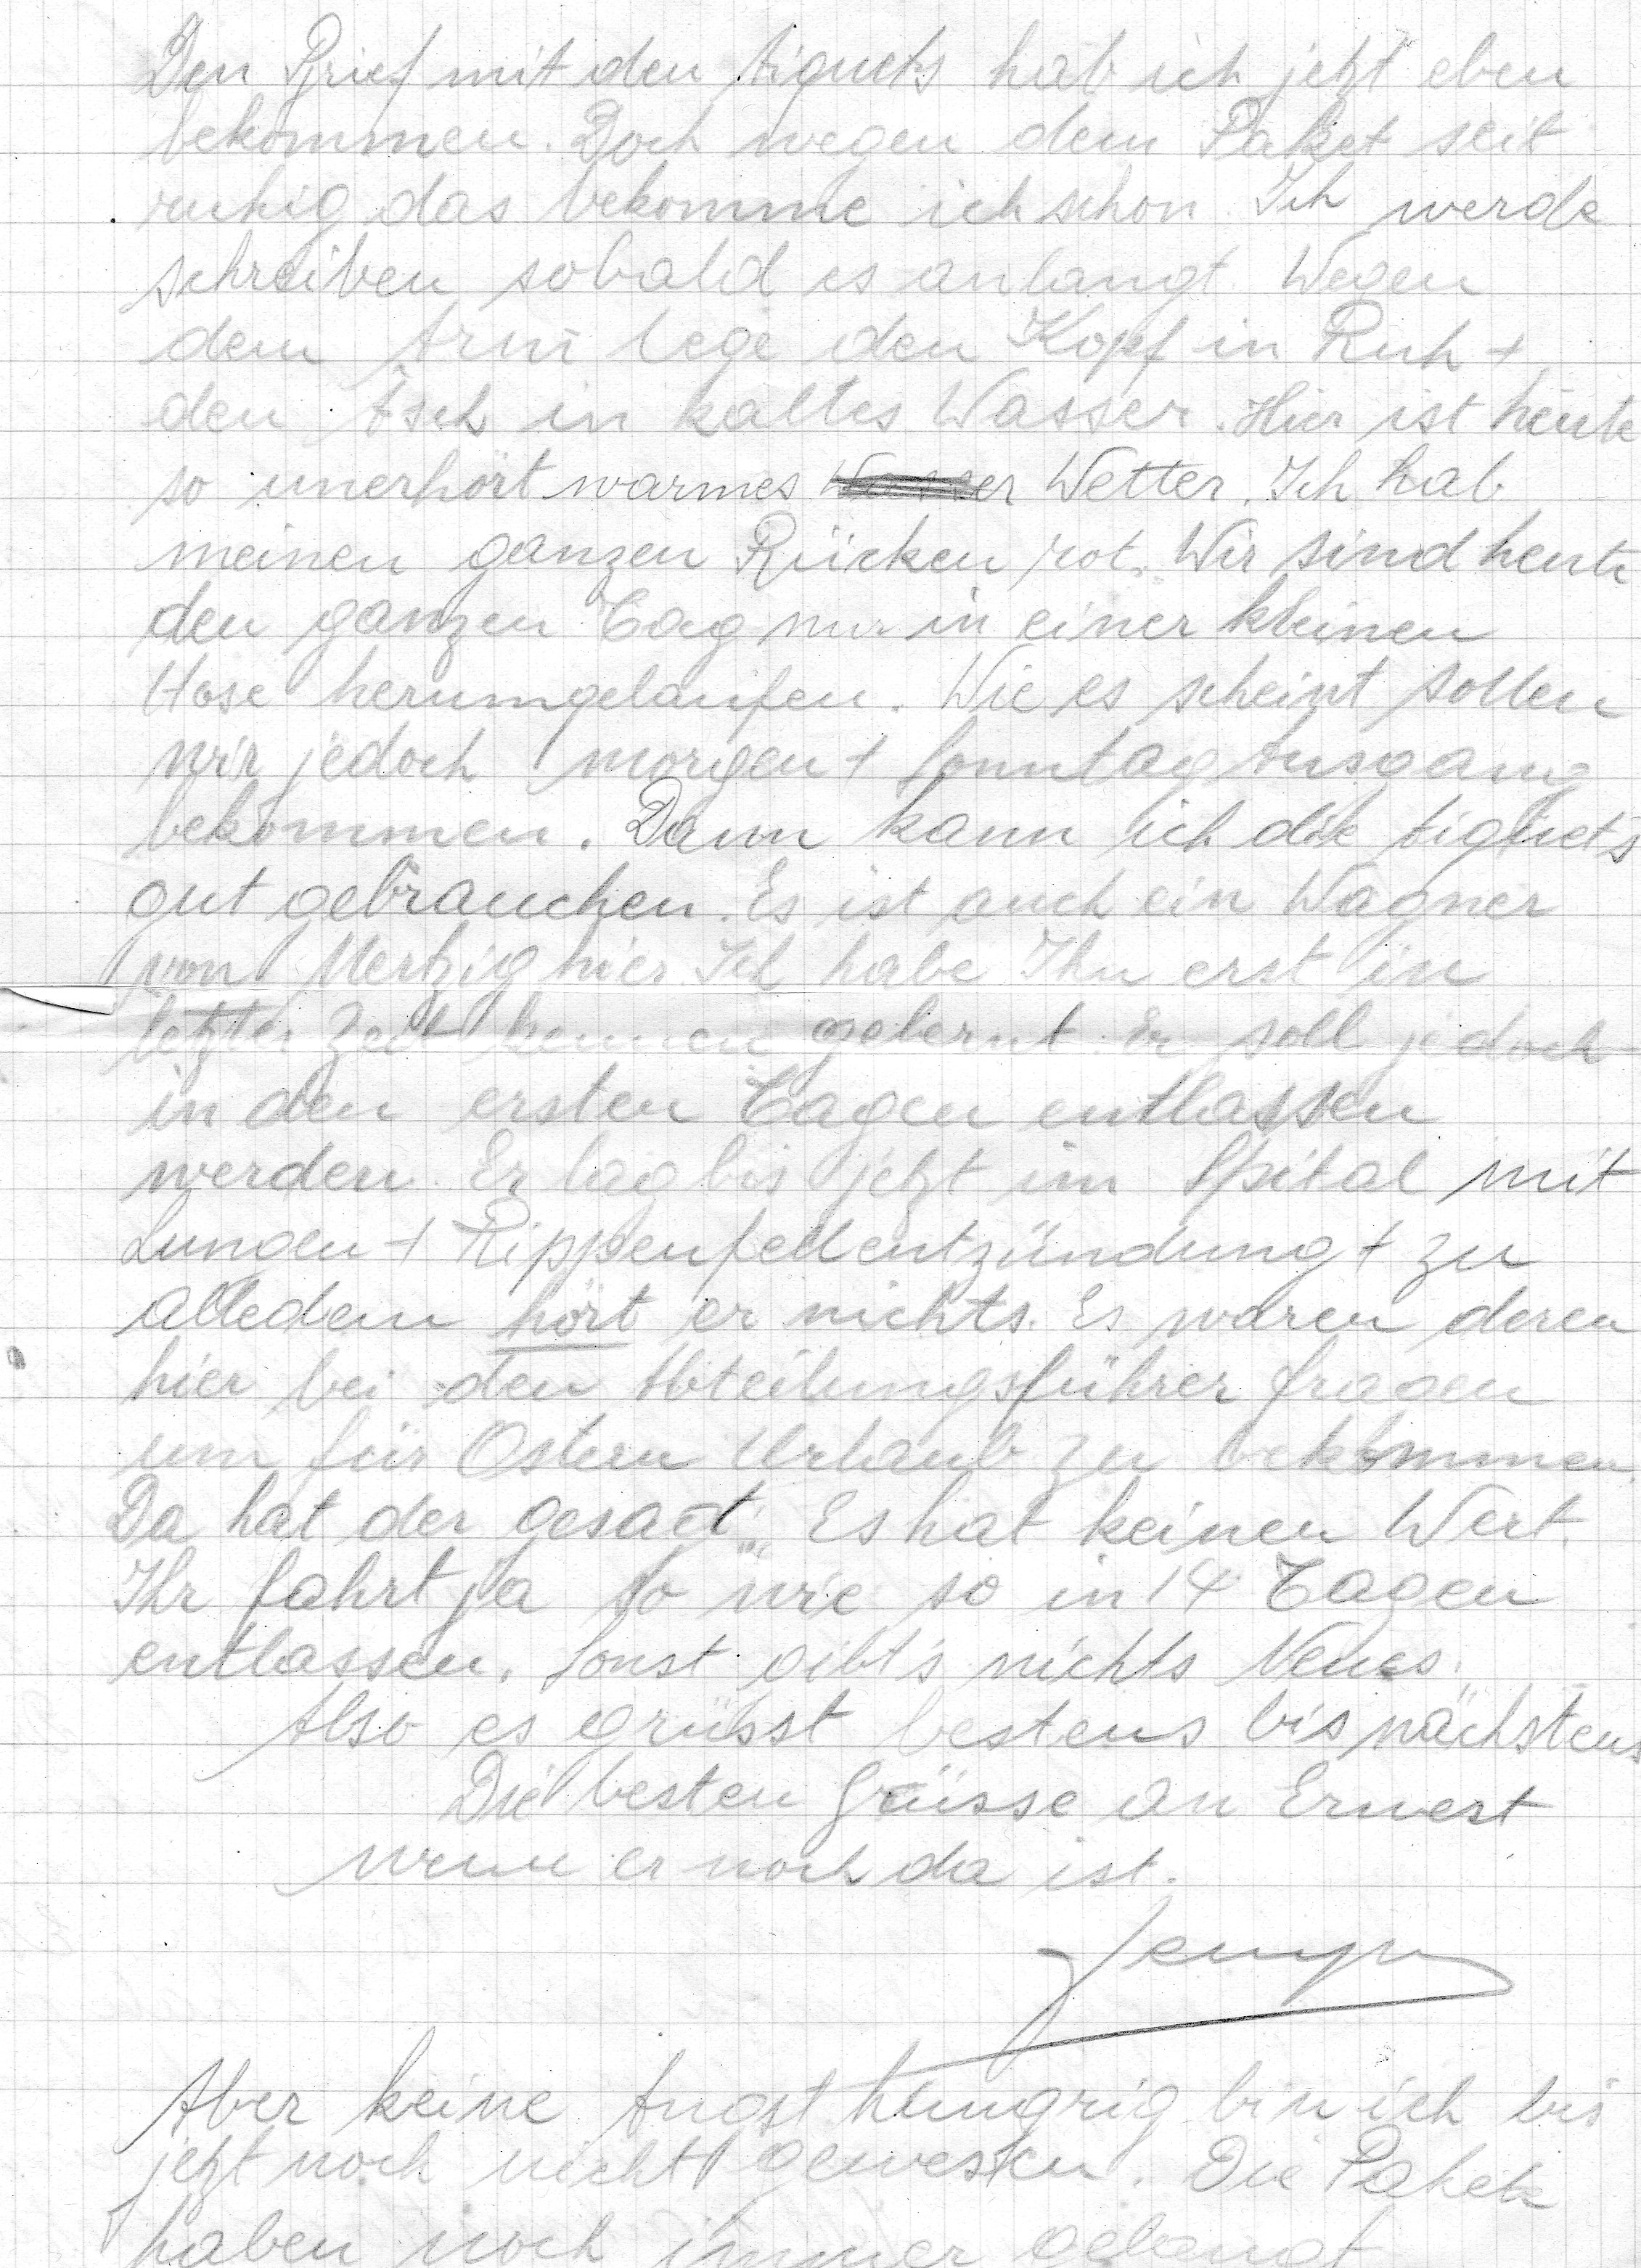 Den Brief mit den tiquets hab ich jetzt eben
bekommen. Doch wegen dem Paket seit
ruhig das bekomme ich schon Ich werde
schreiben sobald es anlangt. Wegen
dem Arm lege den Kopf in Ruh +
den Asch in kaltes Wasser. Hier ist heute
so unerhört warmes Wasser Wetter. Ich hab
meinen ganzen Rücken rot. Wir sind heute
den ganzen Tag nur in einer kleinen
Hose herumgelaufen. Wie es scheint sollen
wir jedoch morgen + Sonntag Ausgang
bekommen. Dann kann ich die tiquets
gut gebrauchen. Es ist auch ein Wagner
von Mertzig hier. Ich habe Ihn erst in
letzter Zeit kennen gelernt. Er soll jedoch
in den ersten Tagen entlassen
werden. Er lag bis jetzt im Spital mit
Lungen + Rippenfellentzündung + zu
alledem hört er nichts. Es waren deren
hier bei den Abteilungsführer fragen
um für Ostern Urlaub zu bekommen.
Da hat der gesagt: „Es hat keinen Wert.
Ihr fahrt ja so wie so in 14 Tagen
entlassen. Sonst gibt's nichts Neues.
Also es grüsst bestens bis nächstens
Die besten Grüsse an Ernest
wenn er noch da ist.
Jemp
Aber keine Angst hungrig bin ich bis
jetzt noch nicht gewesen. Die Pakete
haben noch immer gelangt